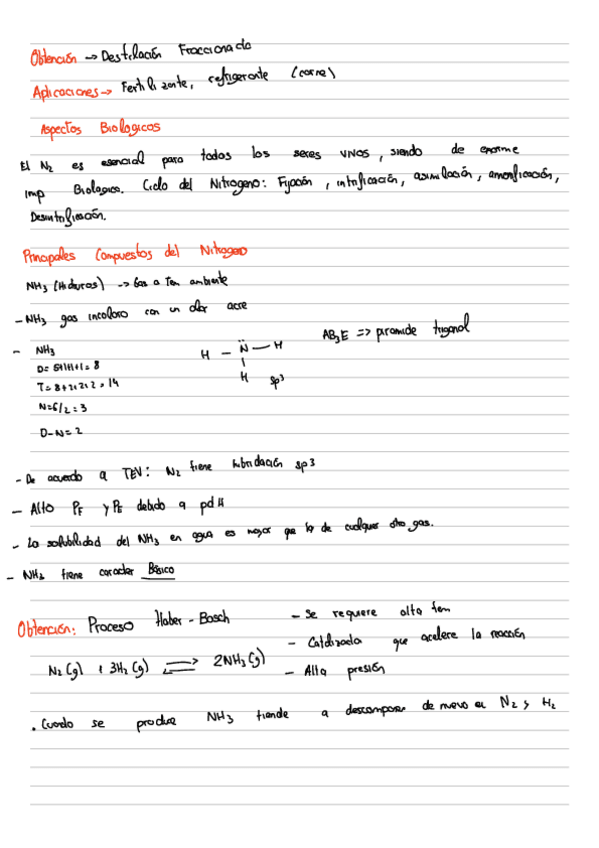 Obtención → Destilación Fraccionada
Aplicaciones → Fertilizante, refrigerante (carne)
Aspectos Biologicos
El N2 es esencial para todos los seres vivos, siendo de enorme
imp Biologica. Ciclo del Nitrogeno: Fijación, nitrificación, asimilación, amonificación,
Desnitrificación.
Principales Compuestos del Nitrogeno
NH3 (Hiduros) → Gas a Tem ambiente
- NH3 gas incoloro con un olor acre
AB3E => piramide trigonal
- NH3
H - N̈ - H
H sp3
D= 5+1+1+1= 8
T= 8+2+2+2 = 14
N=6/2 = 3
D-N= 2
- De acuerdo a TEV: N2 tiene hibridación sp3
- Alto PF y PE debido a pdH
- La solubilidad del NH3 en agua es mayor que la de cualquier otro gas.
- NH3 tiene caracter Básico
Obtención: Proceso Haber - Bosch
- Se requiere alta tem
- Catalizador que acelere la reacción
N2(g) + 3H2(g) ⇌ 2NH3(g)
- Alta presión
. Cuando se produce NH3 tiende a descomponer de nuevo en N2 y H2